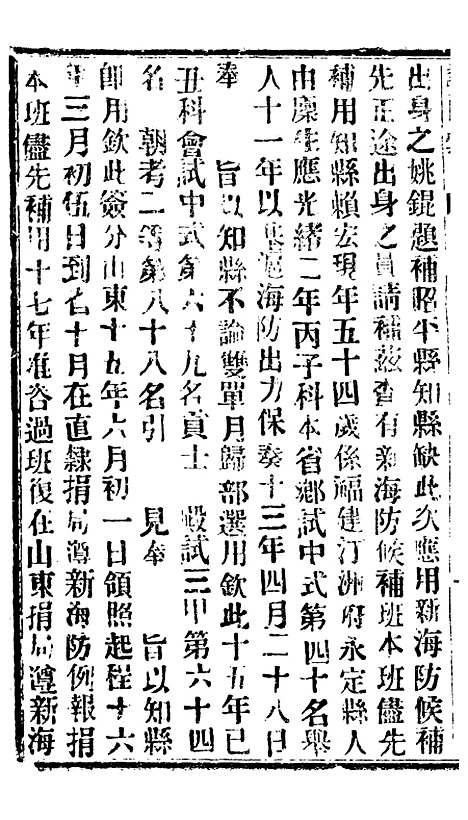 出身之姚錕題補昭平縣知縣缺此次應用新海防候補
先正途出身之員請補茲查有新海防候補班本班儘先
補用知縣賴宏現年五十四歲係福建汀洲府永定縣人
由廩生應光緒二年丙子科本省鄉試中式第四十名舉
人十一年以基隆海防出力保奏十三年四月二十八日
奉　旨以知縣不論雙單月歸部選用欽此十五年己
丑科會試中式第六十九名貢士　殿試三甲第六十四
名　朝考二等第八十八名引　見奉　旨以知縣
卽用欽此簽分山東十五年六月初一日領照起程十六
年三月初伍日到省十月在直隸捐局遵新海防例報捐
本班儘先補用十七年准咨過班復在山東捐局遵新海